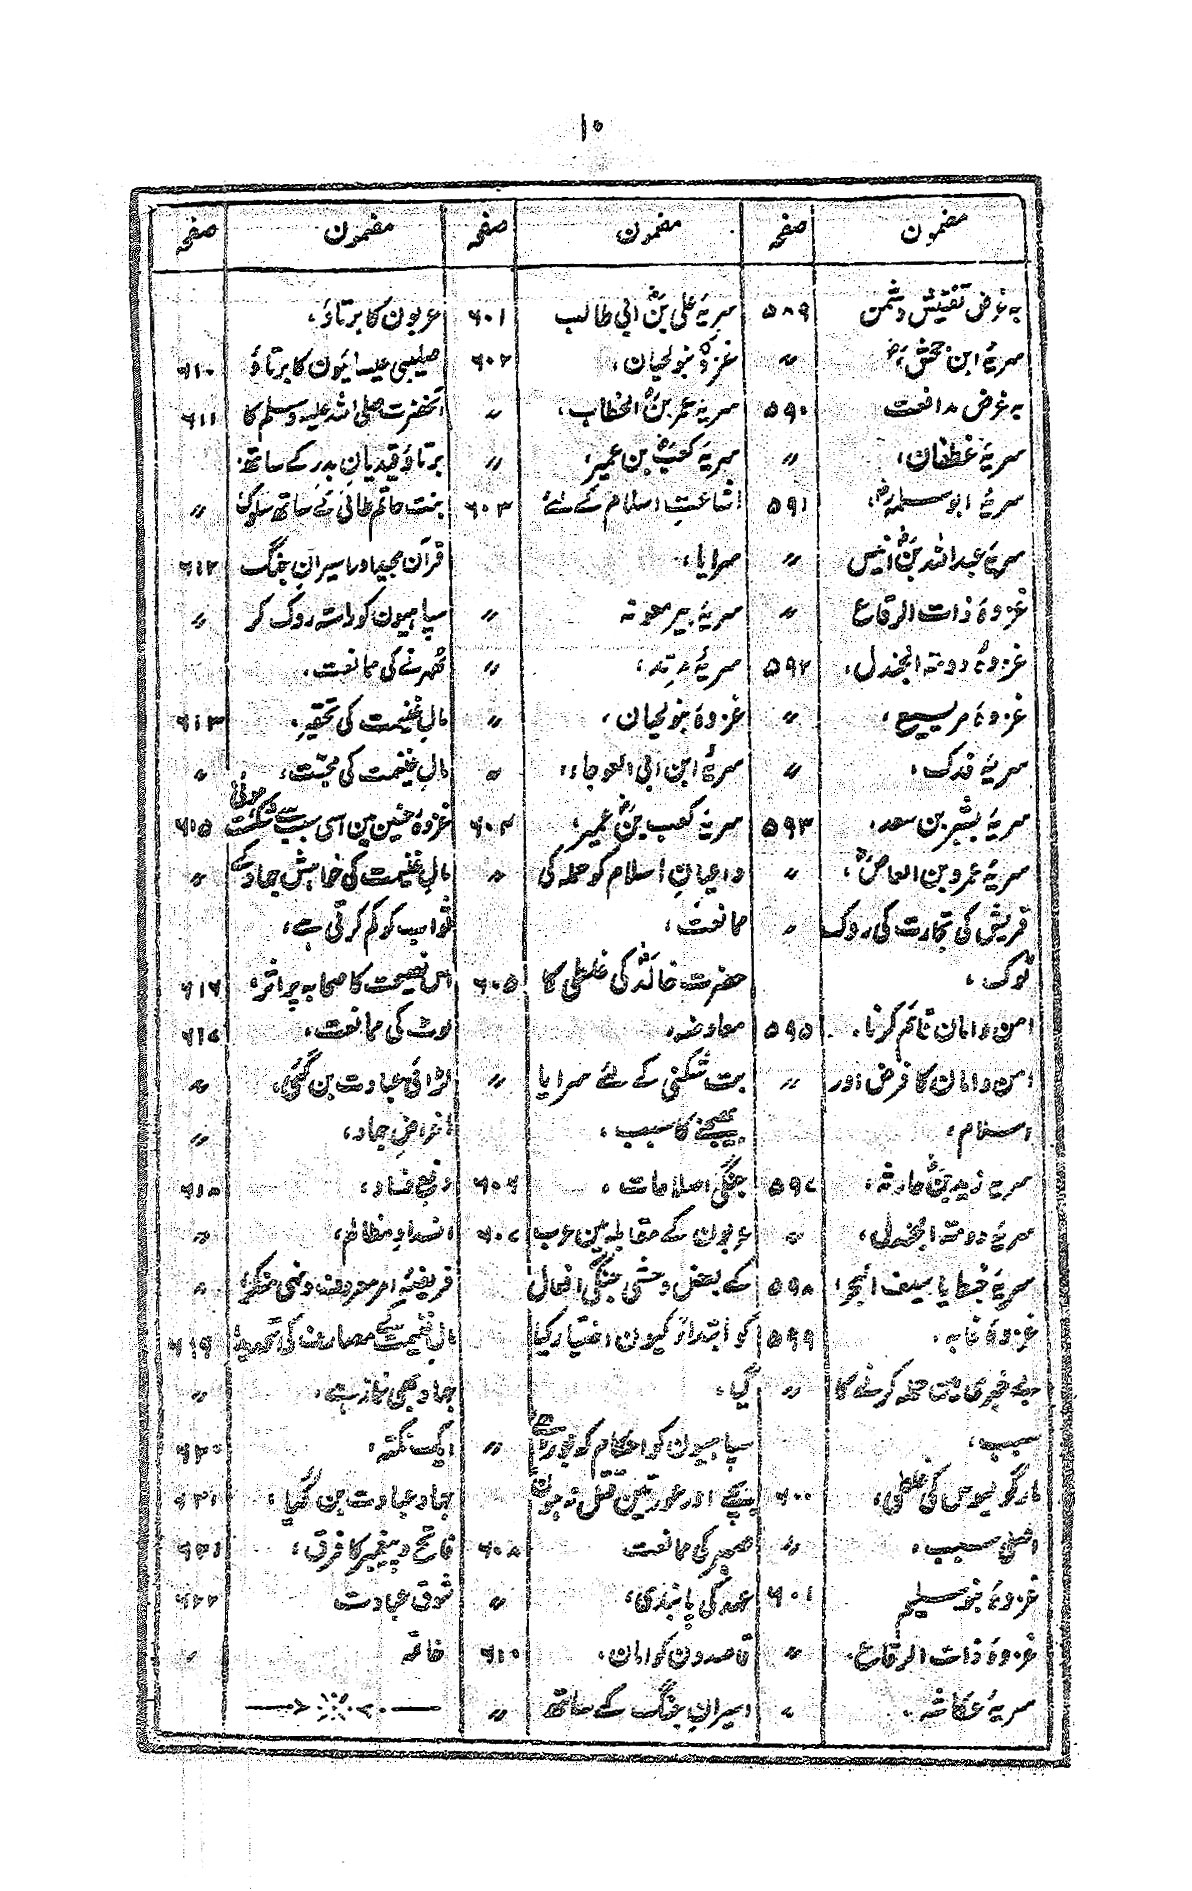 ۱۰
مضمون صفحہ مضمون صفحہ مضمون صفحہ
بہ غرض تفتیش دشمن ۵۸۹
سریۂ ابن جحشؓ، 〃
بہ غرض مدافعت ۵۹۰
سریۂ غطفان، 〃
سریۂ ابو سلمہؓ، ۵۹۱
سریۂ عبداللہ بنؓ انیس 〃
غزوۂ ذات الرقاع 〃
غزوۂ دومۃ الجندل، ۵۹۲
غزوۂ مریسیع، 〃
سریۂ فدک، 〃
سریۂ بشیر بن سعد، ۵۹۳
سریۂ عمرو بن العاصؓ، 〃
قریش کی تجارت کی روک 〃
ٹوک،
امن و امان قائم کرنا، ۵۹۵
امن و امان کا فرض اور 〃
اسلام،
سریہ زید بنؓ حارثہ، ۵۹۷
سریۂ دومۃ الجندل، 〃
سریۂ خبط یا سیف البحر، ۵۹۸
غزوۂ غابہ، ۵۹۹
بے خبری میں حملہ کرنے کا 〃
سبب،
مارگولیوس کی غلطی، ۶۰۰
اصلی سبب، 〃
غزوۂ بنو سلیم ۶۰۱
غزوۂ ذات الرقاع، 〃
سریۂ عکاشہ، 〃
سریۂ علی بنؓ ابی طالب ۶۰۱
غزوۂ بنو لحیان، ۶۰۲
سریۂ عمر بنؓ الخطاب، 〃
سریۂ کعبؓ بن عمیر، 〃
اشاعتِ اسلام کے لئے ۶۰۳
سرایا،
سریۂ بیر معونہ 〃
سریۂ مرثد، 〃
غزوۂ بنو لحیان، 〃
سریۂ ابن ابی العوجاء، 〃
سریۂ کعب بنؓ عمیر، ۶۰۴
داعیانِ اسلام کو حملہ کی 〃
ممانعت،
حضرت خالدؓ کی غلطی کا ۶۰۵
معاوضہ،
بت شکنی کے لئے سرایا 〃
بھیجنے کا سبب،
جنگی اصلاحات، ۶۰۶
عربون کے مقابلہ مین عرب ۶۰۷
کے بعض وحشی جنگی افعال
کو ابتداءً کیون اختیار کیا
گیا،
سپاہیون کو احکام کہ بوڑھے 〃
بچے اور عورتین قتل نہ ہون
صبر کی ممانعت ۶۰۸
عہد کی پابندی، 〃
قاصدون کو امان، ۶۱۰
اسیرانِ جنگ کے ساتھ 〃
عربون کا برتاؤ،
صلیبی عیسائیون کا برتاؤ ۶۱۰
آنحضرت صلی اللہ علیہ وسلم کا ۶۱۱
برتاؤ قیدیانِ بدر کے ساتھ،
بنت حاتم طائی کے ساتھ سلوک 〃
قرآن مجید اور اسیران جنگ ۶۱۲
سپاہیون کو راستہ روک کر 〃
ٹھہرنے کی ممانعت،
مالِ غنیمت کی تحقیر، ۶۱۳
مالِ غنیمت کی محبت، 〃
غزوۂ حنین مین اسی سبب سے شکست ہوئی ۶۱۵
مالِ غنیمت کی خواہش جہاد کے 〃
ثواب کو کم کرتی ہے،
اس نصیحت کا صحابہ پر اثر، ۶۱۶
لوٹ کی ممانعت، ۶۱۷
لڑائی عبادت بن گئی، 〃
اغراضِ جہاد، 〃
دفعِ فساد، ۶۱۸
انسدادِ مظالم، 〃
فریضۂ امر معروف و نہی منکر، 〃
مالِ غنیمت کے مصارف کی تحدید، ۶۱۹
جہاد بھی نماز ہے، 〃
ایک نکتہ، ۶۲۰
جہاد عبادت بن گیا، ۶۲۱
فاتح و پیغمبر کا فرق، ۶۲۱
شوق عبادت ۶۲۲
خاتمہ 〃